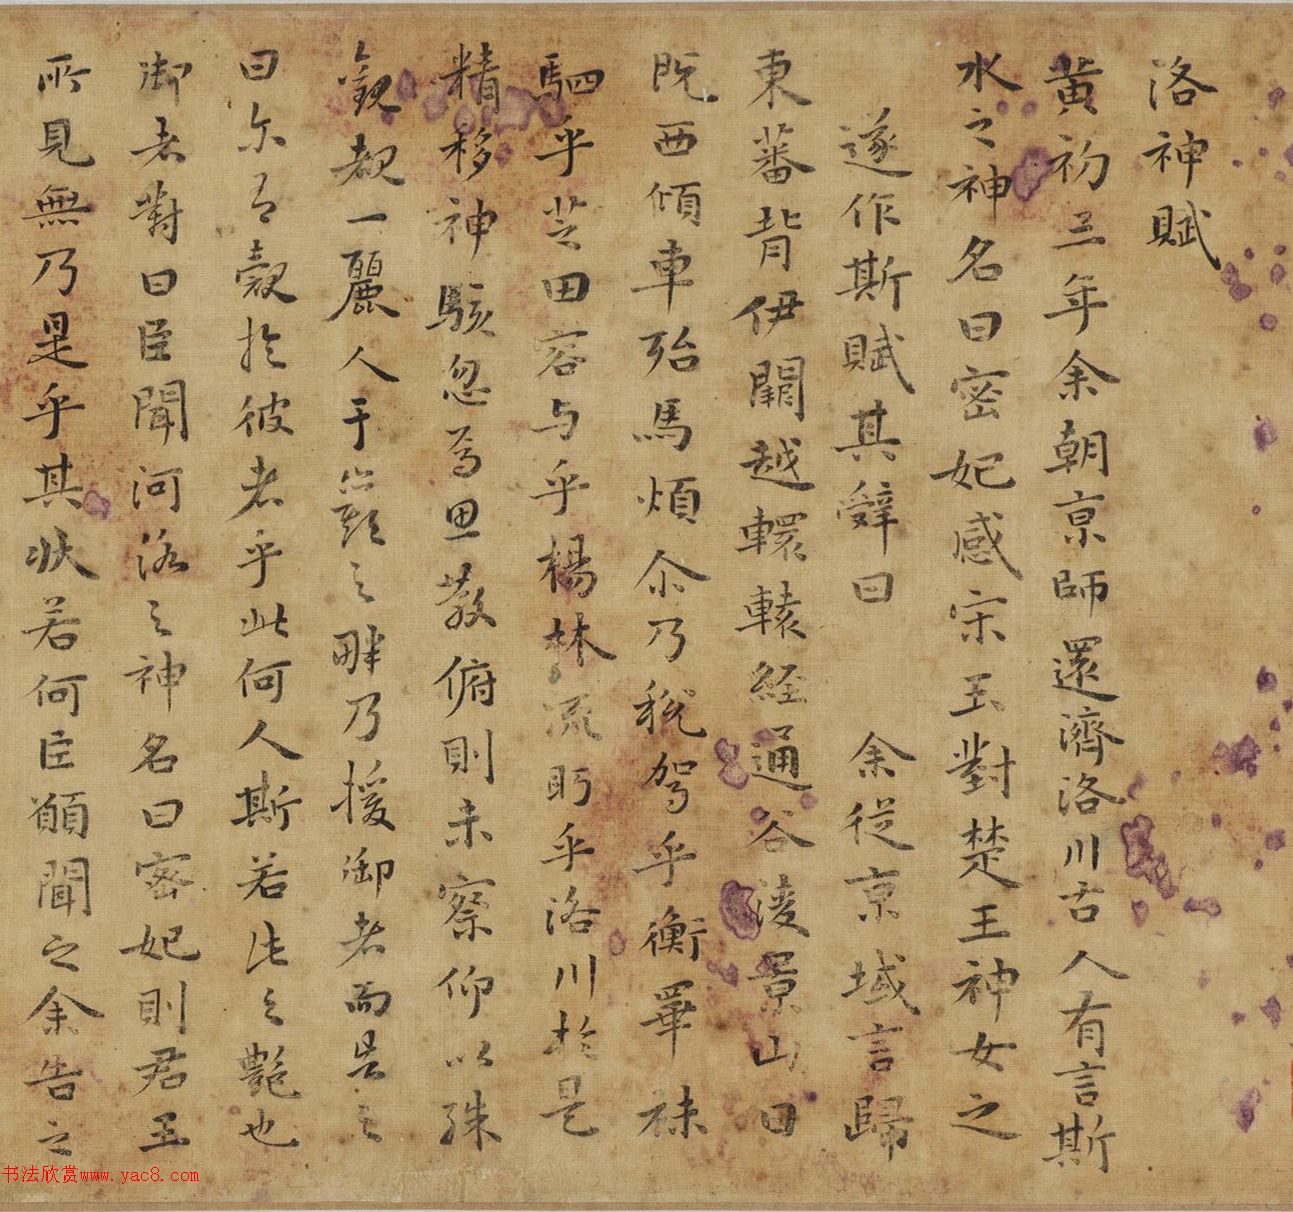 洛神賦
黃初三年余朝京師還濟洛川古人有言斯
水之神名曰密妃感宋玉對楚王神女之
遂作斯賦其辭曰 余從京域言歸
東蕃背伊闕越轘轅経通谷淩景山日
既西傾車殆馬煩尒乃稅駕乎衡睪秣
駟乎芝田容与乎楊林流眄乎洛川於是
精移神駭忽焉思散俯則未察仰以殊
觀覩一麗人于巖之畔乃援御者而告之
曰尓有觀於彼者乎此何人斯若此之艶也
御者對曰臣聞河洛之神名曰密妃則君王
所見無乃是乎其狀若何臣願聞之余告之
书法欣赏www.yac8.com